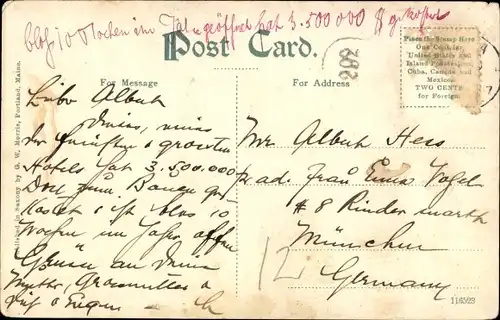 blos 10 Wochen im Jahr geöffnet hat 3.500 000 $ gekostet
Post Card.
For Message
For Address
Place the Stamp Here
One Cent for
United States and
Island Possessions,
Cuba, Canada and
Mexico.
TWO CENTS
for Foreign.
282
Published by G. W. Morris, Portland, Maine.
Lieber Albert
eines der feinsten & grossten
Hotels hat 3.500.000
Doll zum Bauen ge-
kostet & ist blos 10
Wochen im Jahr offen
Grüsse an Deine
Mutter, Grossmutter &
Mr Albert Hess
p ad. Frau Emma Vogel
# 8 Rinder markt
München
Germany
116529